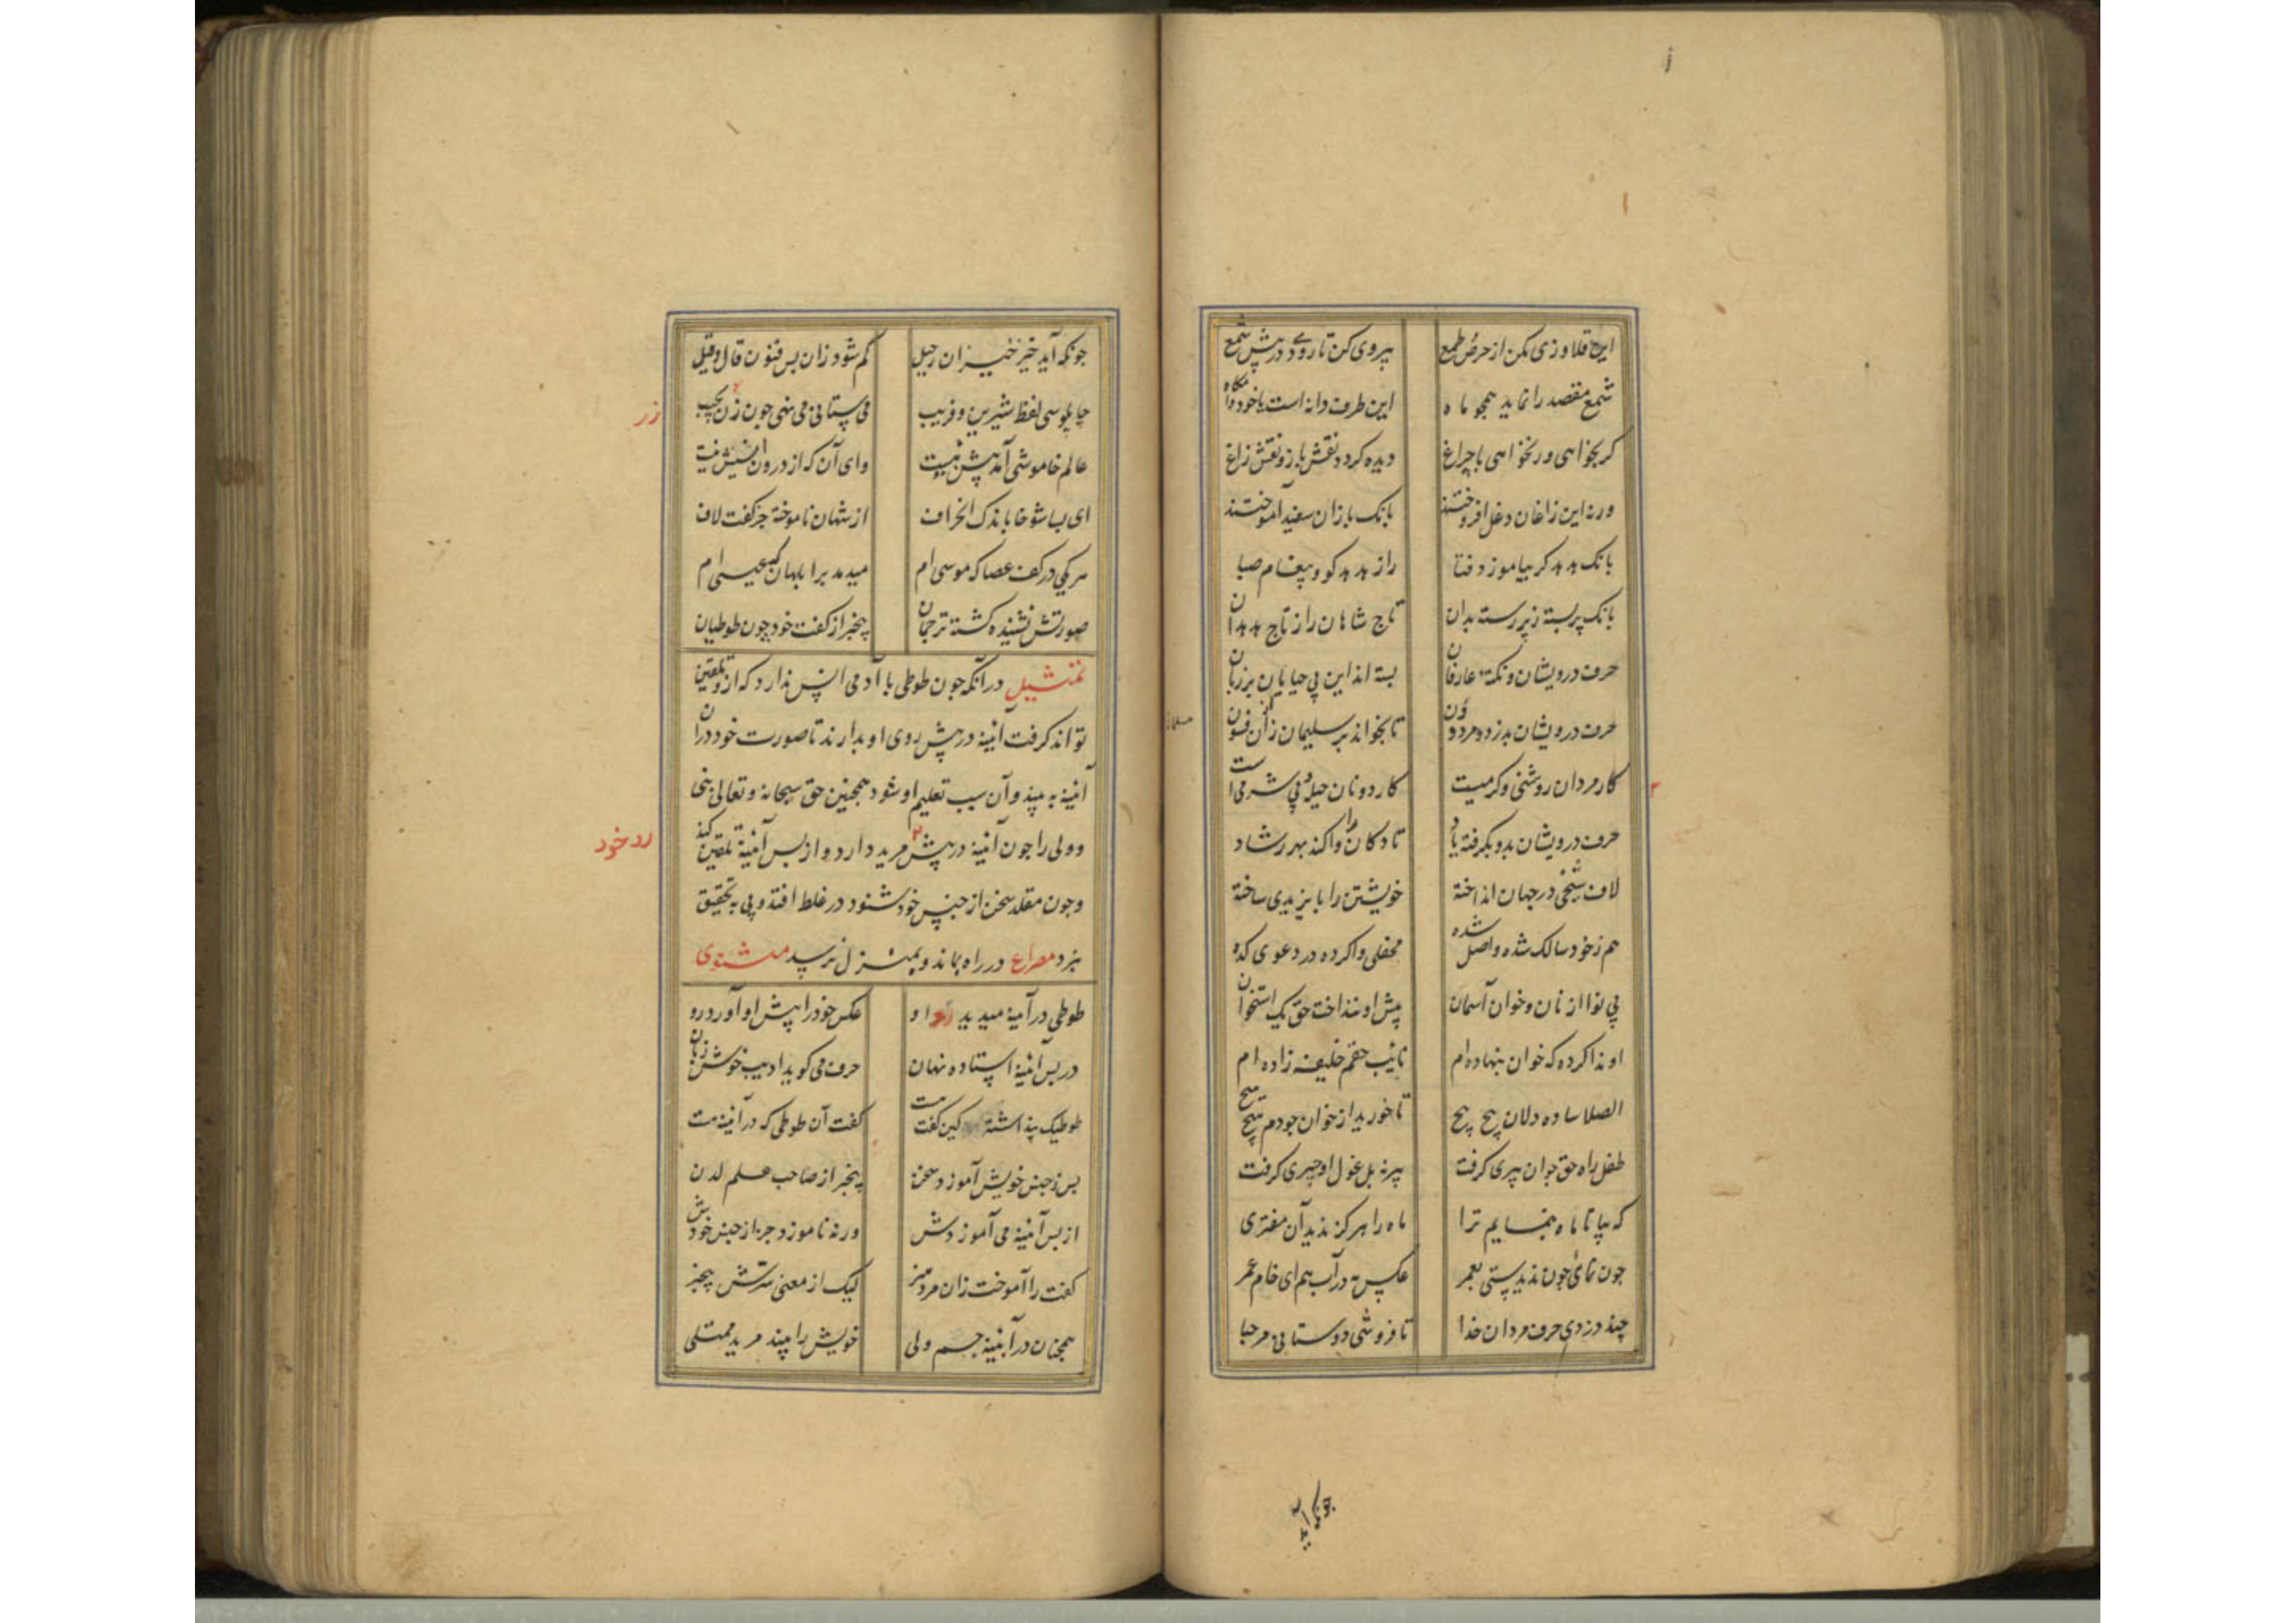 این قلاوزی مکن از حرص طمع پیروی کن تا رود در پیش شمع
شمع مقصد را نماید همچو ماه این طرف دانه است یا خود دامگاه
کر بخواهی ور نخواهی با چراغ دیده کردد نقش باز و نقش زاغ
ورنه این زاغان دغل افروختند بانک بازان سفید آموختند
بانک هدهد کر بیاموزد فتا راز هدهد کو و پیغام صبا
بانک پر بسته ز پر رسته بدان تاج شاهان را ز تاج هدهدان
حرف درویشان و نکتهٔ عارفان بسته اند این بی حیایان بر زبان
حرف درویشان بدزدد مرد دون تا بخواند بر سلیمان زان فسون
کار مردان روشنی و کرمیست کار دونان حیله و بی شرمی است
حرف درویشان بدو بکرفته یاد تا دکان را وا کند بهر رشاد
لاف شیخی در جهان انداخته خویشتن را بایزیدی ساخته
هم ز خود سالک شده واصل شده محفلی وا کرده در دعوی کده
بی نوا از نان و خوان آسمان پیش او ننداخت حق یک استخوان
او ندا کرده که خوان بنهاده ام نایب حقم خلیفه زاده ام
الصلا ساده دلان پیچ پیچ تا خورید از خوان جودم هیچ هیچ
طفل راه حق جوان پیری کرفت پیر نه بل غول او چیری کرفت
که بیا تا ماه بنمایم ترا ماه را هرکز ندید آن مفتری
چون نمائی چون ندیدستی بعمر عکس مه در آب هم ای خام غمر
چند دزدی حرف مردان خدا تا فروشی و ستانی مرحبا
چونکه آید
چونکه آید خیز خیزان رحیل کم شود زان پس فنون قال و قیل
چاپلوسی لفظ شیرین و فریب می ستانی می نهی چون زن بجیب
زر
عالم خاموشی آمد پیش بیست وای آن که از درون انسیش نیست
ای بسا شوخا باندک انحراف از شهان ناموخته جز کفت لاف
هر یکی در کف عصا که موسی ام میدمد بر ابلهان که عیسی ام
صورتش نشنیده کشته ترجمان بیخبر از کفت خود چون طوطیان
تمثیل در آنکه چون طوطی با آدمی انس ندارد که از و تلقین
تواند کرفت آینه در پیش روی او بدارند تا صورت خود در آن
آینه به بیند و آن سبب تعلیم او شود همچنین حق سبحانه و تعالی نبی
و ولی را چون آینه در پیش مرید دارد و از پس آینه تلقین کند
رد خود
و چون مقلد سخن از جنس خود شنود در غلط افتد و پی به تحقیق
نبرد مصراع در راه بماند و بمنزل نرسد مثنوی
طوطی در آینه میدید او عکس خود را پیش او آورد رو
در پس آینه استاده نهان حرف می کوید ادیب خوش زبان
طوطیک پنداشته کین کفت ست کفت آن طوطی که در آینه ست
پس ز جنس خویش آموزد سخن بیخبر از صاحب علم لدن
از پس آینه می آموزدش ورنه ناموزد جز از جنس خودش
کفت را آموخت زان مرد هنر لیک از معنی سرش بیخبر
همچنان در آینه جسم ولی خویش را بیند مرید ممتلی